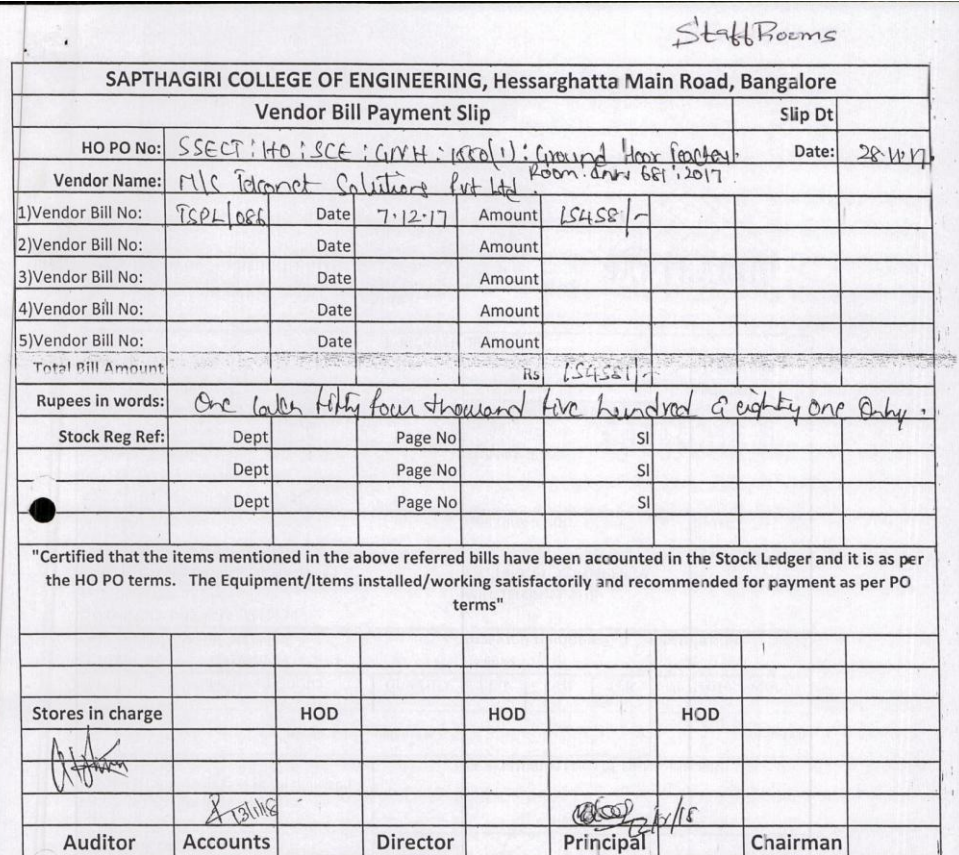 Staff Rooms
SAPTHAGIRI COLLEGE OF ENGINEERING, Hessarghatta Main Road, Bangalore
Vendor Bill Payment Slip Slip Dt
HO PO No: SSECT: HO: SCE: Ground Floor Date: 28.11.17
Room 681: 2017
Vendor Name: M/S Solutions Pvt Ltd.
1)Vendor Bill No: TSPL/086 Date 7.12.17 Amount
2)Vendor Bill No: Date Amount
3)Vendor Bill No: Date Amount
4)Vendor Bill No: Date Amount
5)Vendor Bill No: Date Amount
Total Bill Amount Rs 154581/-
Rupees in words: One fifty four thousand five hundred & eighty one Only.
Stock Reg Ref: Dept Page No SI
Dept Page No SI
Dept Page No SI
"Certified that the items mentioned in the above referred bills have been accounted in the Stock Ledger and it is as per
the HO PO terms. The Equipment/Items installed/working satisfactorily and recommended for payment as per PO
terms"
Stores in charge HOD HOD HOD
Auditor Accounts Director Principal Chairman